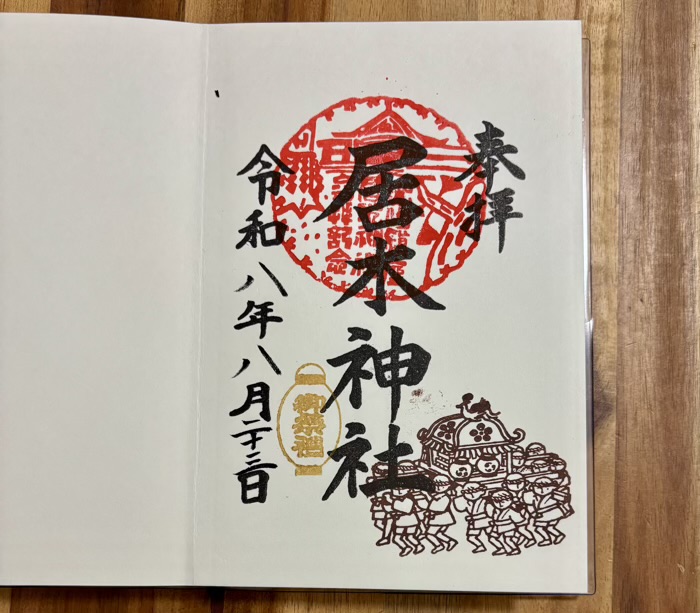 奉拝
居木神社
御祭禮
令和八年八月二十三日